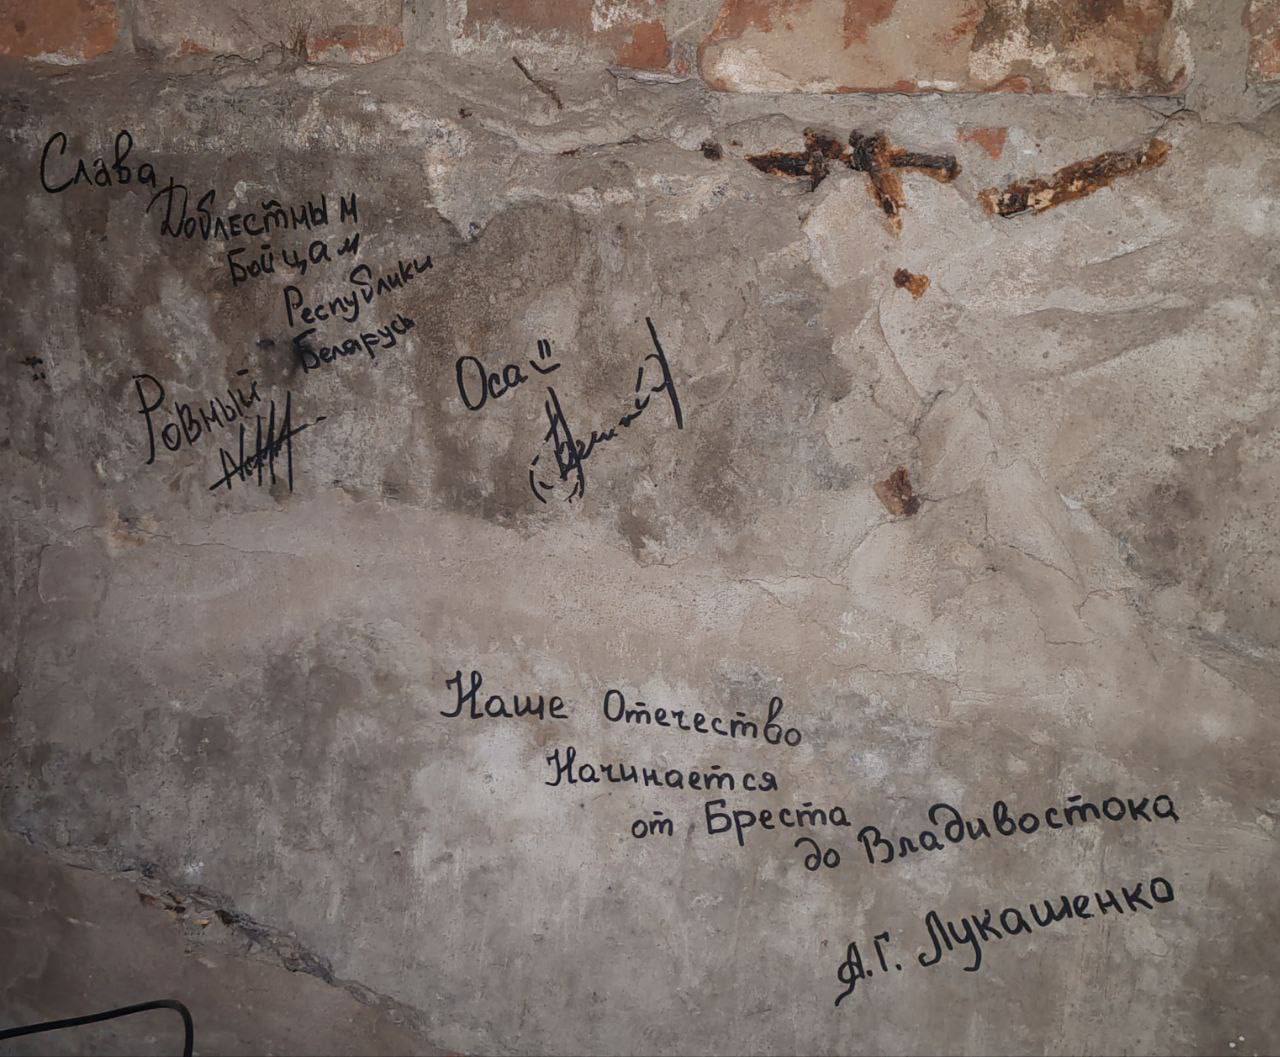 Слава
Доблестным
Бойцам
Республики
Беларусь
Ровный
Оса
Наше Отечество
Начинается
от Бреста
до Владивостока
А.Г. Лукашенко